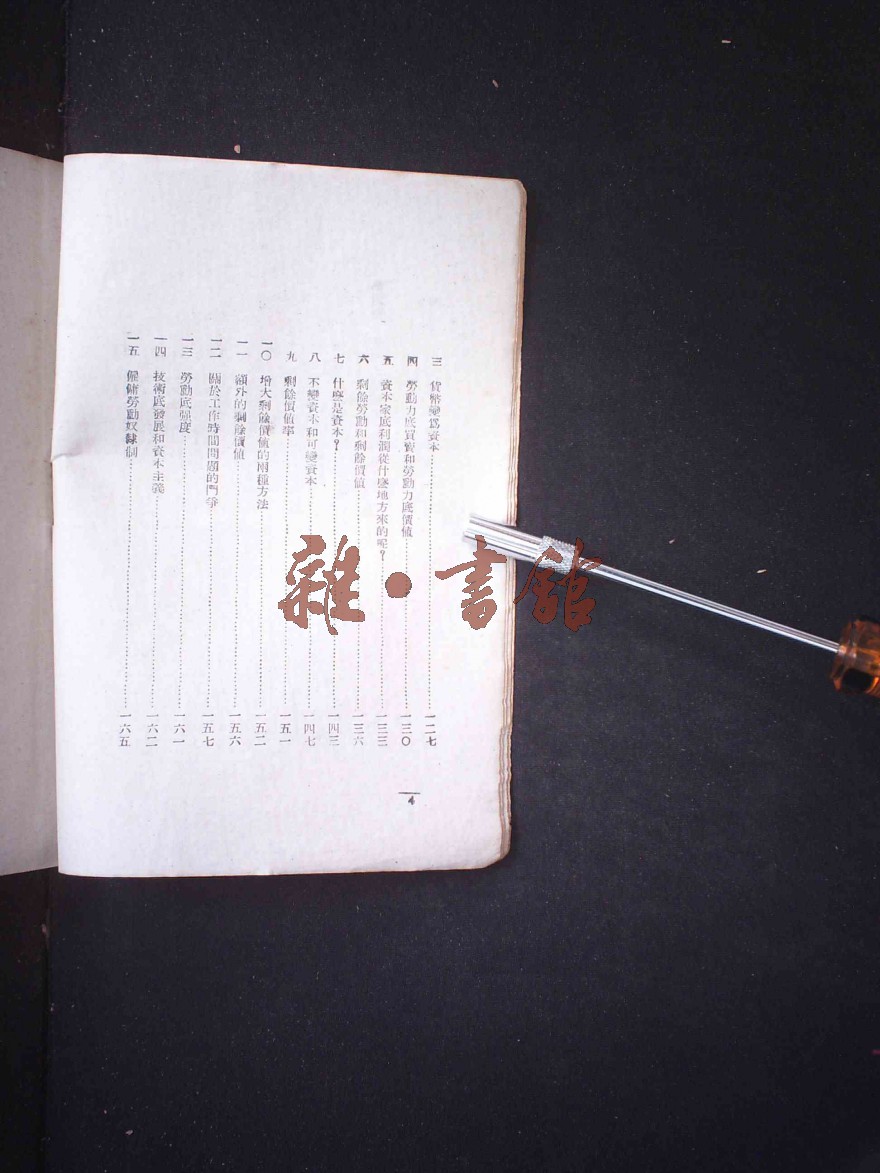 三　貨幣變爲資本……一二七
四　勞動力底買賣和勞動力底價値……一三〇
五　資本家底利潤從什麽地方來的呢？……一三三
六　剩餘勞動和剩餘價値……一三六
七　什麽是資本？……一四三
八　不變資本和可變資本……一四七
九　剩餘價値率……一五一
一〇　增大剩餘價値的兩種方法……一五二
一一　額外的剩餘價値……一五六
一二　關於工作時間問題的鬥爭……一五七
一三　勞動底强度……一六一
一四　技術底發展和資本主義……一六二
一五　僱傭勞動奴隸制……一六五
4
雜·書館